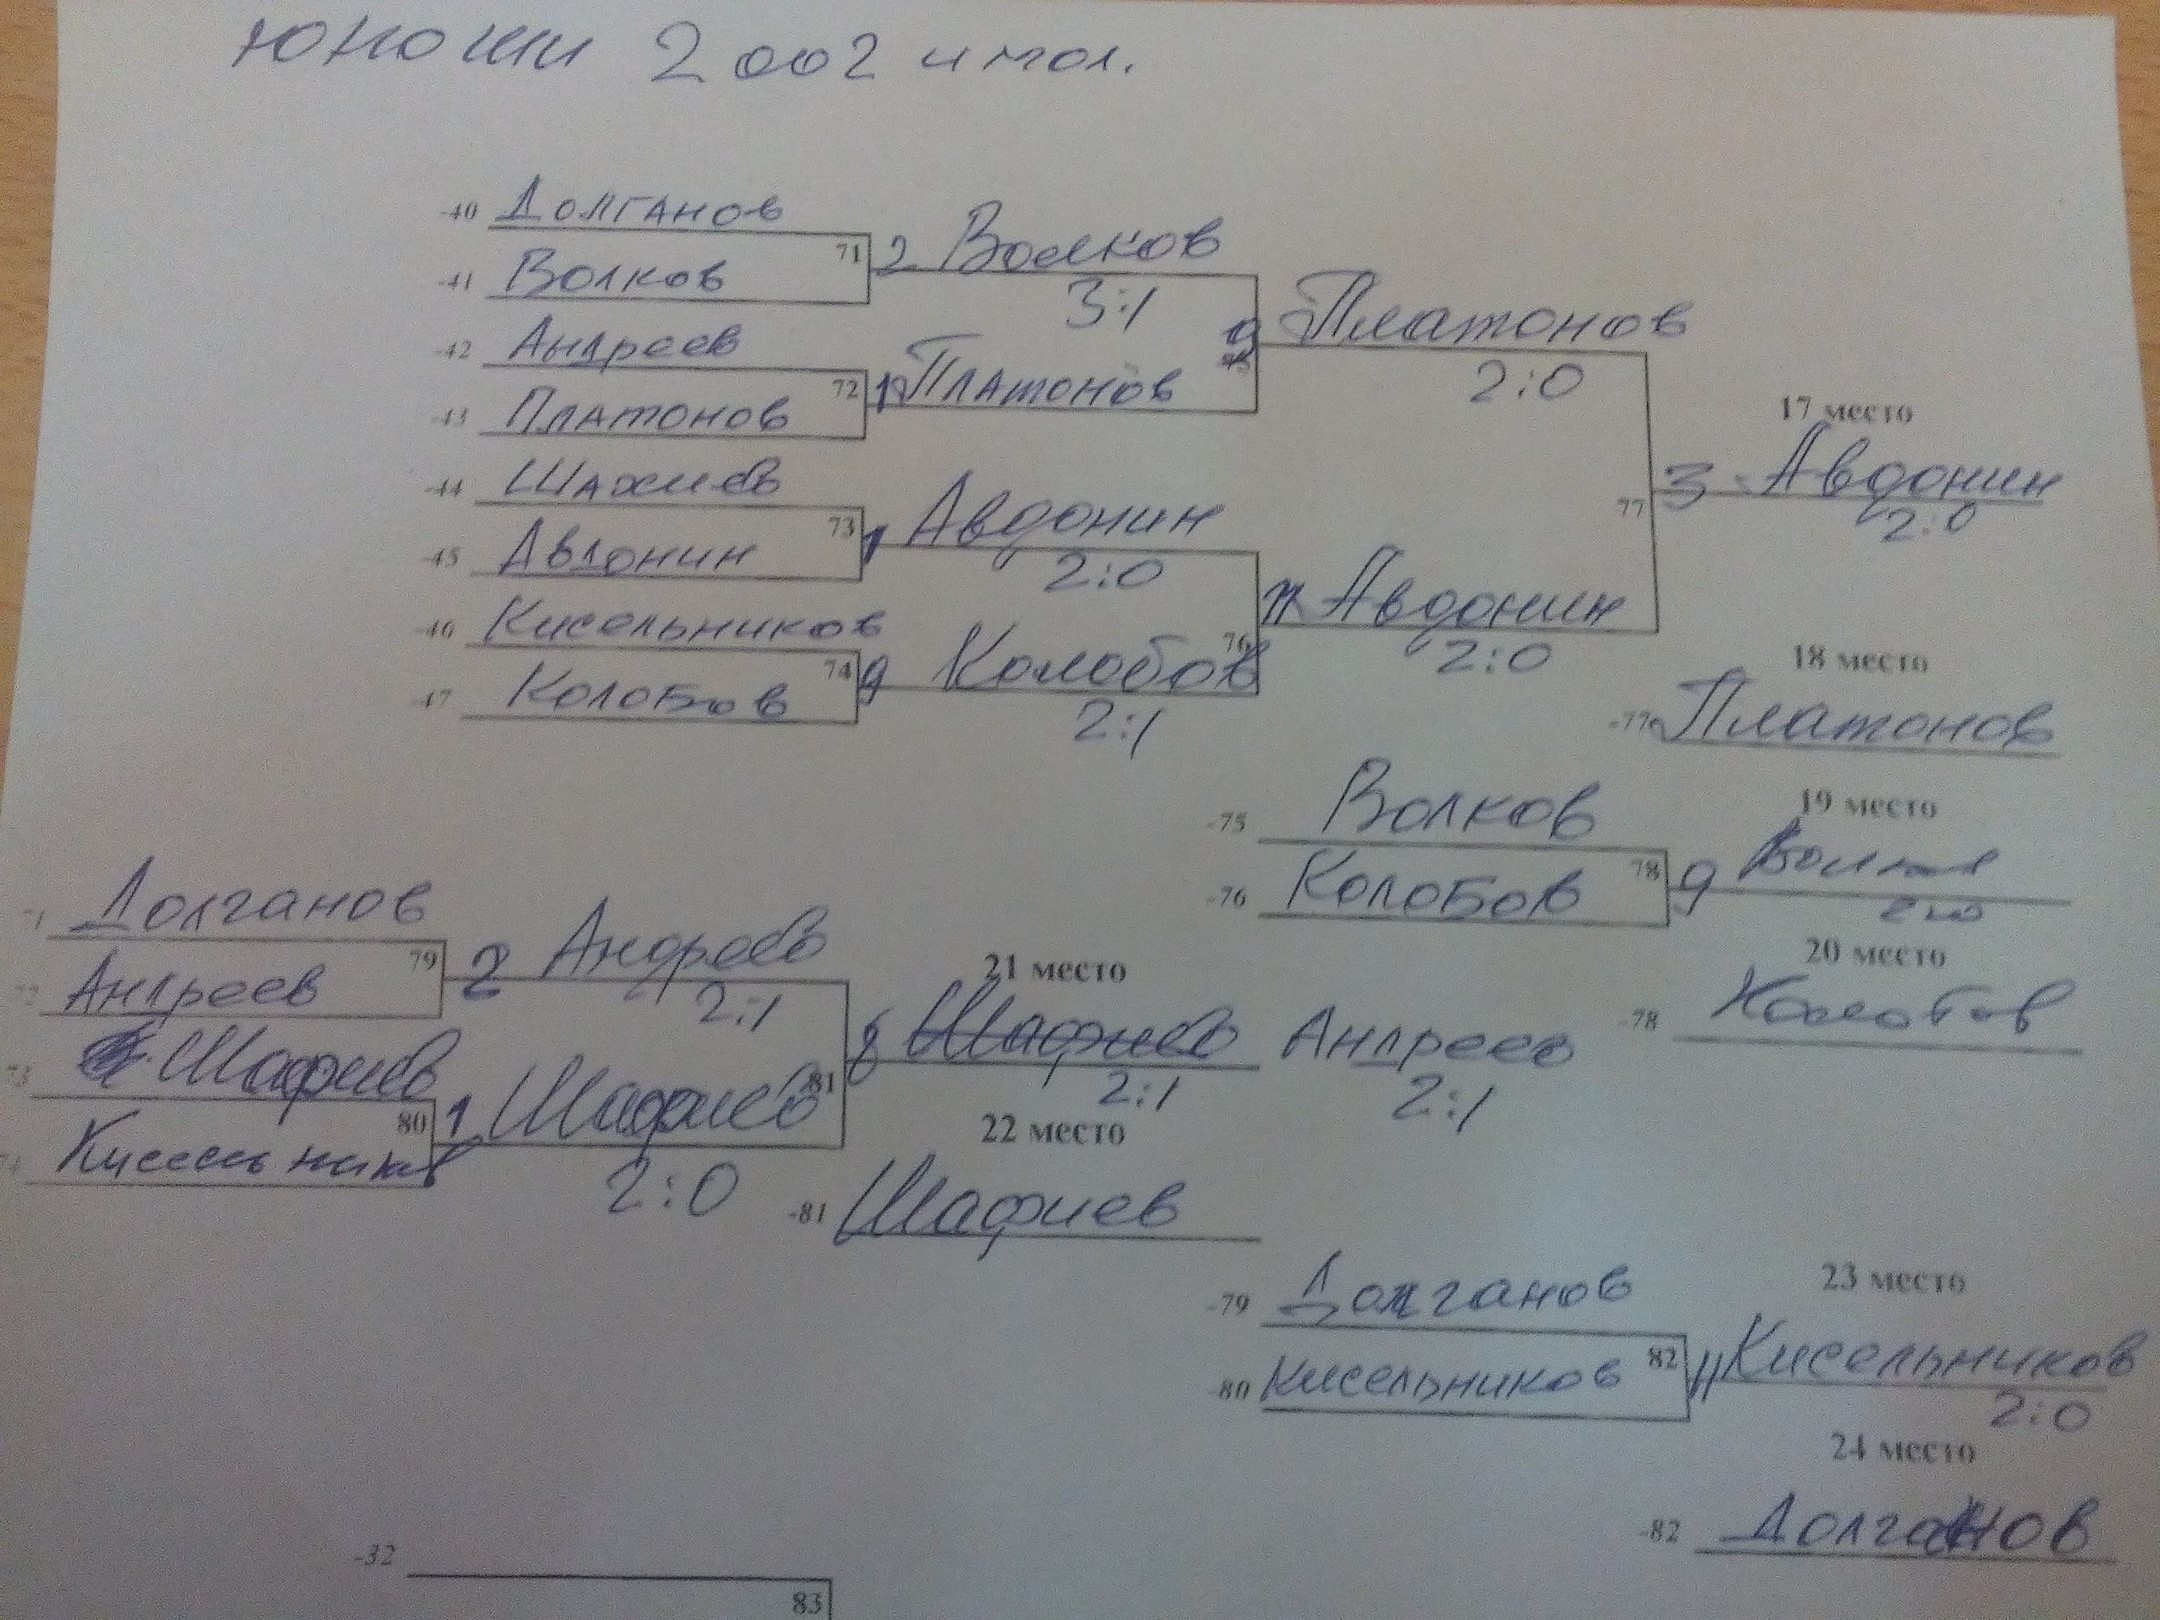 юноши 2002 и мол.
-40 Долганов
-41 Волков
71
2 Волков
3:1
-42 Андреев
-43 Платонов
72
1 Платонов
75
9 Платонов
2:0
-44 Шафиев
-45 Авдонин
73
1 Авдонин
2:0
-46 Кисельников
-47 Колобов
74
9 Колобов
2:1
76
Авдонин
2:0
77
17 место
3 Авдонин
2:0
18 место
-77 Платонов
-75 Волков
-76 Колобов
78
19 место
9 Волков
2:0
20 место
-78 Колобов
71 Долганов
72 Андреев
79
2 Андреев
2:1
73 Шафиев
74 Кисельников
80
1 Шафиев
2:0
81
21 место
8 Шафиев Андреев
2:1 2:1
22 место
-81 Шафиев
-79 Долганов
-80 Кисельников
82
23 место
11 Кисельников
2:0
24 место
-82 Долганов
-32
83